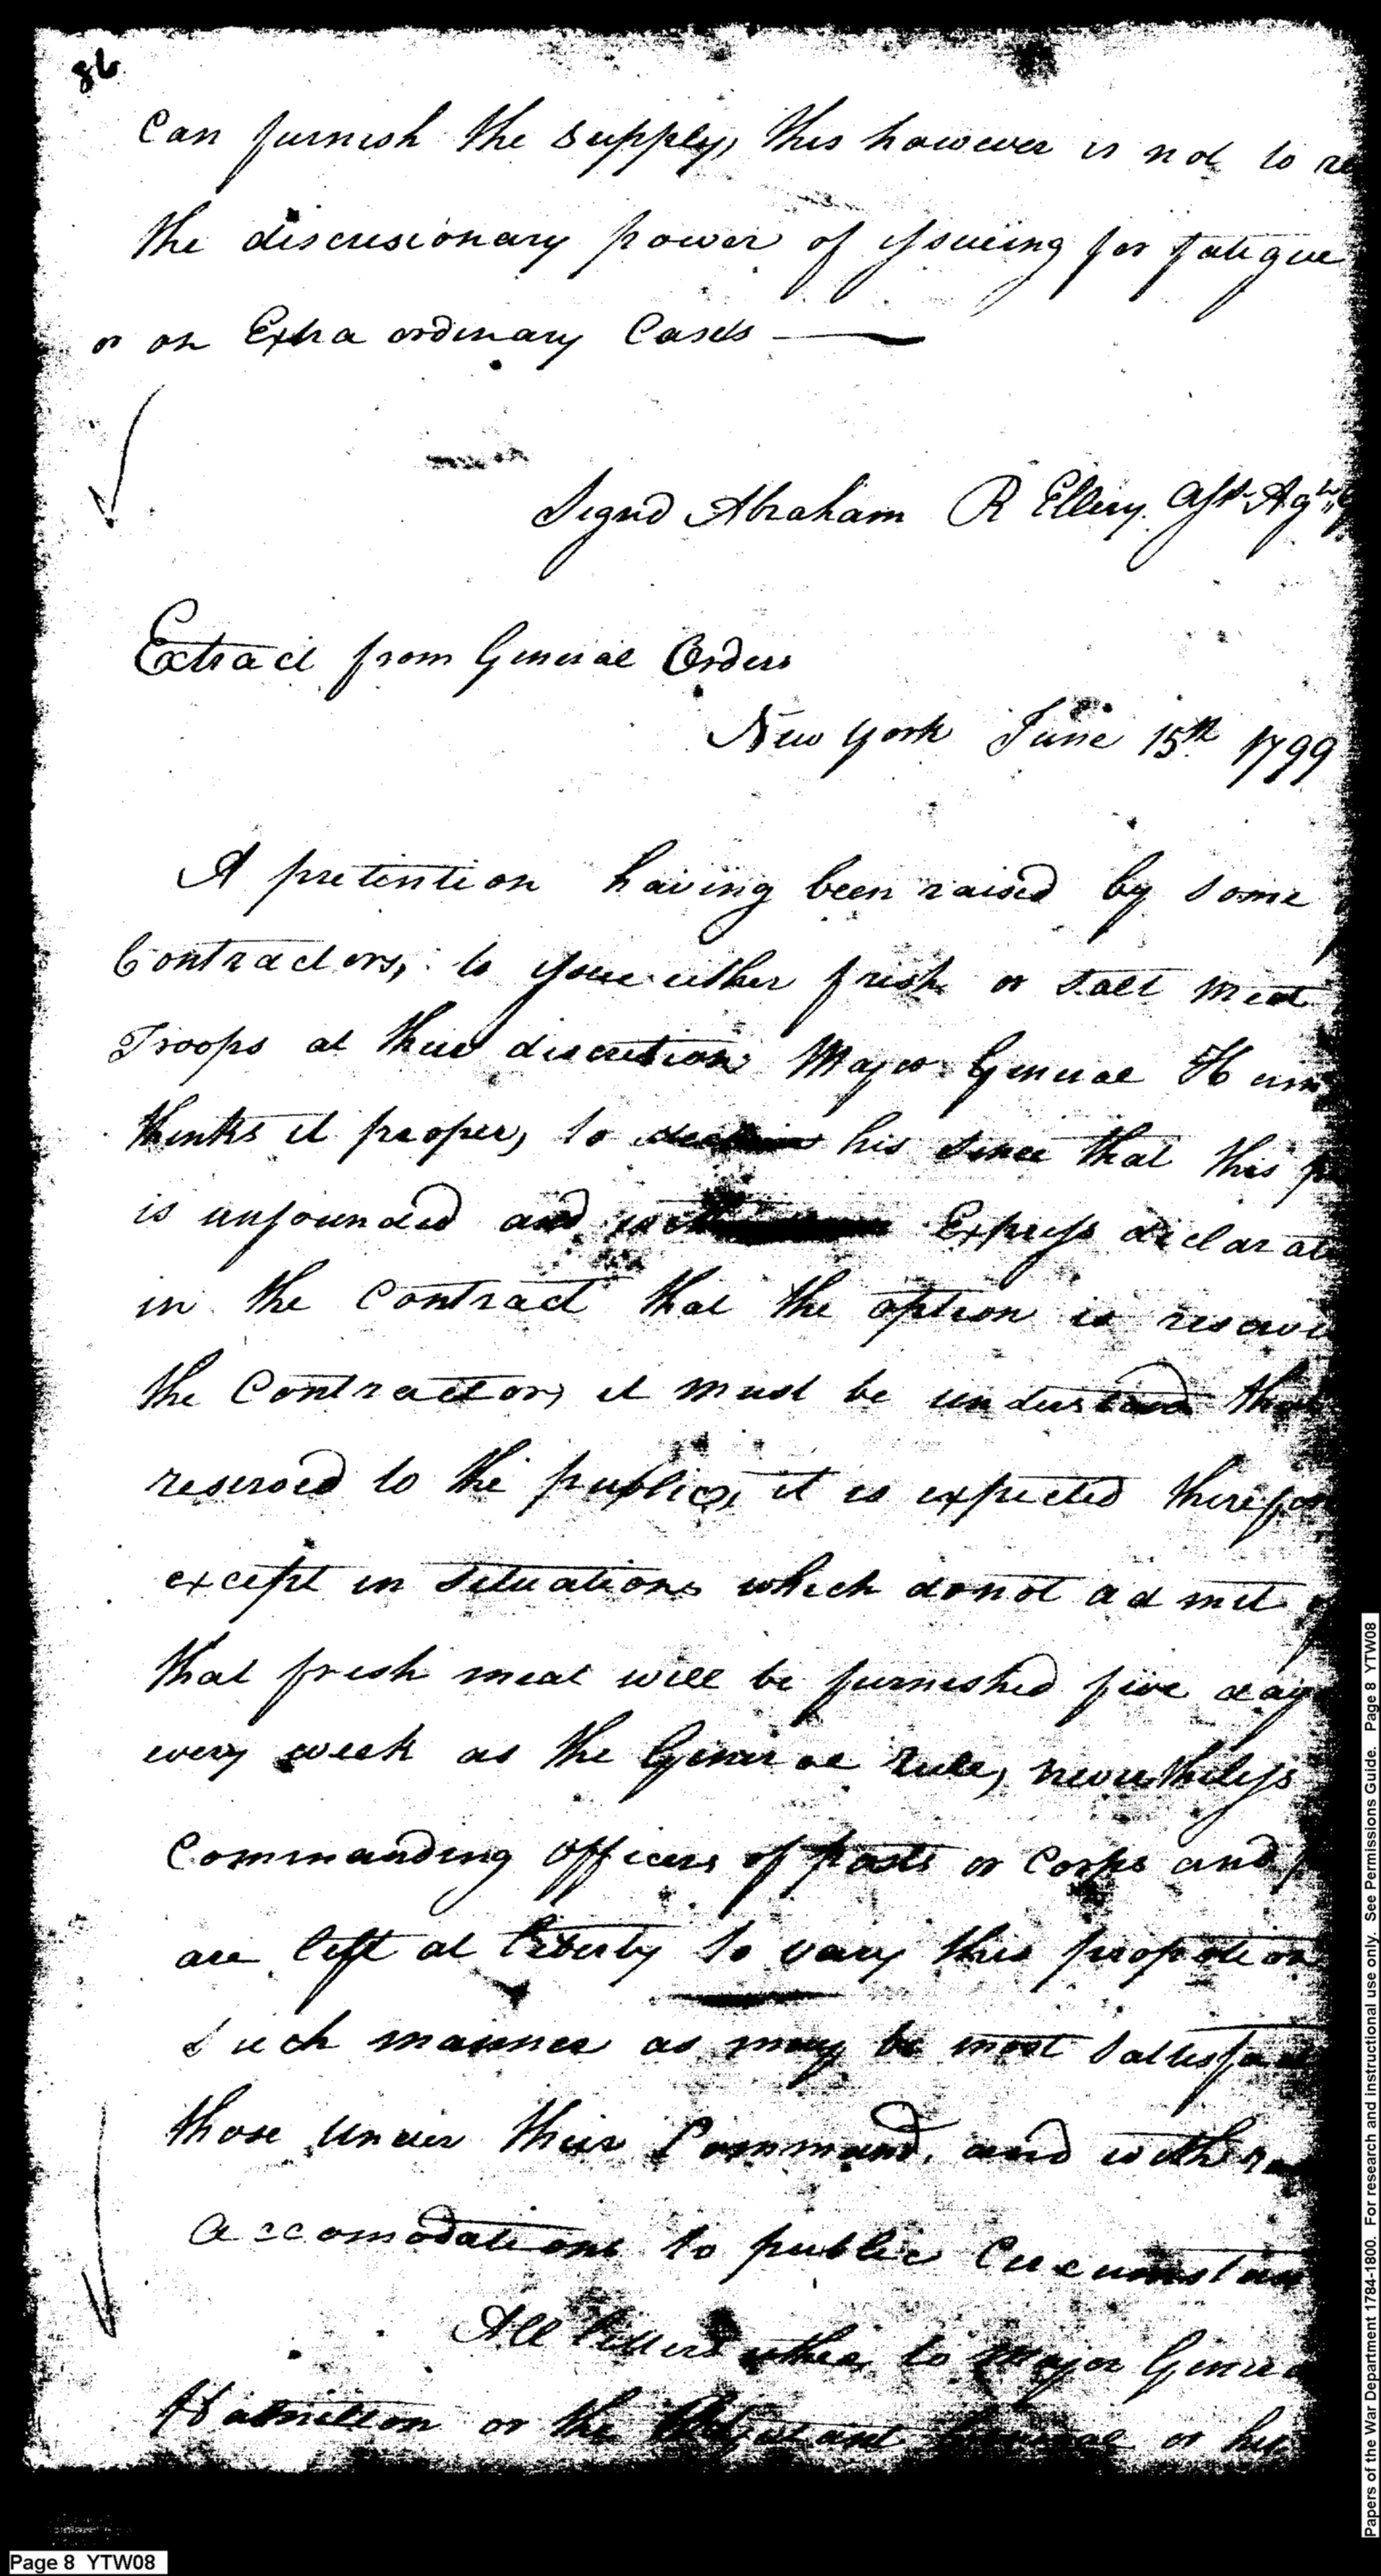 86
Can furnish the Supply, this however is not to re
the discresionary power of Issueing for fatigue
or on Extra ordinary Cases
Signd Abraham R Ellery Asst Agt G
Extract from General Orders
New York June 15th 1799
A pretention having been raised by some
Contractors, to Issue either fresh or salt meat
Troops at their discretion Major General Ham
thinks it proper, to his sence that this
is unfounded and Express declarat
in the Contract that the option is reserve
the Contractor, it must be understood that
reserved to the public, it is expected therefor
except in Situations which do not admit of
that fresh meat will be furnished five day
every week as the General rule, nevertheless
Commanding Officers of posts or Corps and
are left at liberty to vary this propotion
Such manner as may be most Satisfact
those under their Command, and with
accomodations to public Circumstan
All letters either to Major Genera
Hamilton or the Adjutant General or his
Page 8 YTW08
Papers of the War Department 1784-1800. For research and instructional use only. See Permissions Guide. Page 8 YTW08